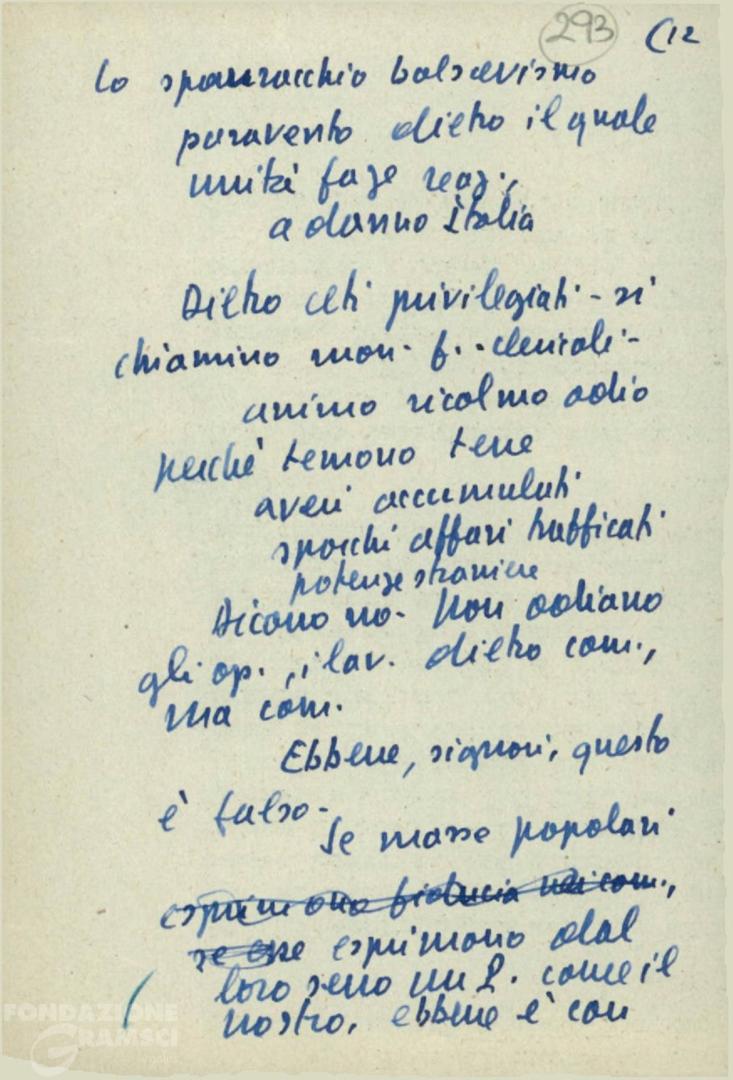 293 (12
lo spauracchio bolscevismo
paravento dietro il quale
unità faze reaz.,
a danno Italia
Dietro ceti privilegiati - si
chiamino mon. f. - clericali -
animo ricolmo odio
perché temono
averi accumulati
sporchi affari trafficati
potenze straniere
Dicono no. Non odiano
gli op., i lav. dietro com.,
ma com.
Ebbene, signori, questo
è falso.
Se masse popolari
esprimono fiducia nei com.,
se esse esprimono dal
loro seno un P. come il
nostro, ebbene è con
FONDAZIONE
GRAMSCI